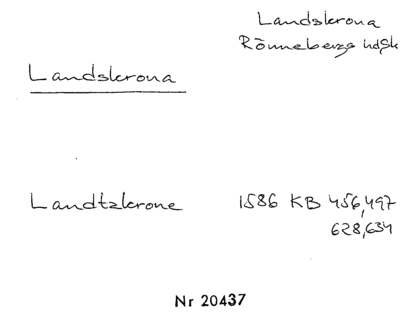 Landskrona
Rönnebergs hd Sk
Landskrona
Landtzkrone 1586 KB 456,497
628,634
Nr 20437